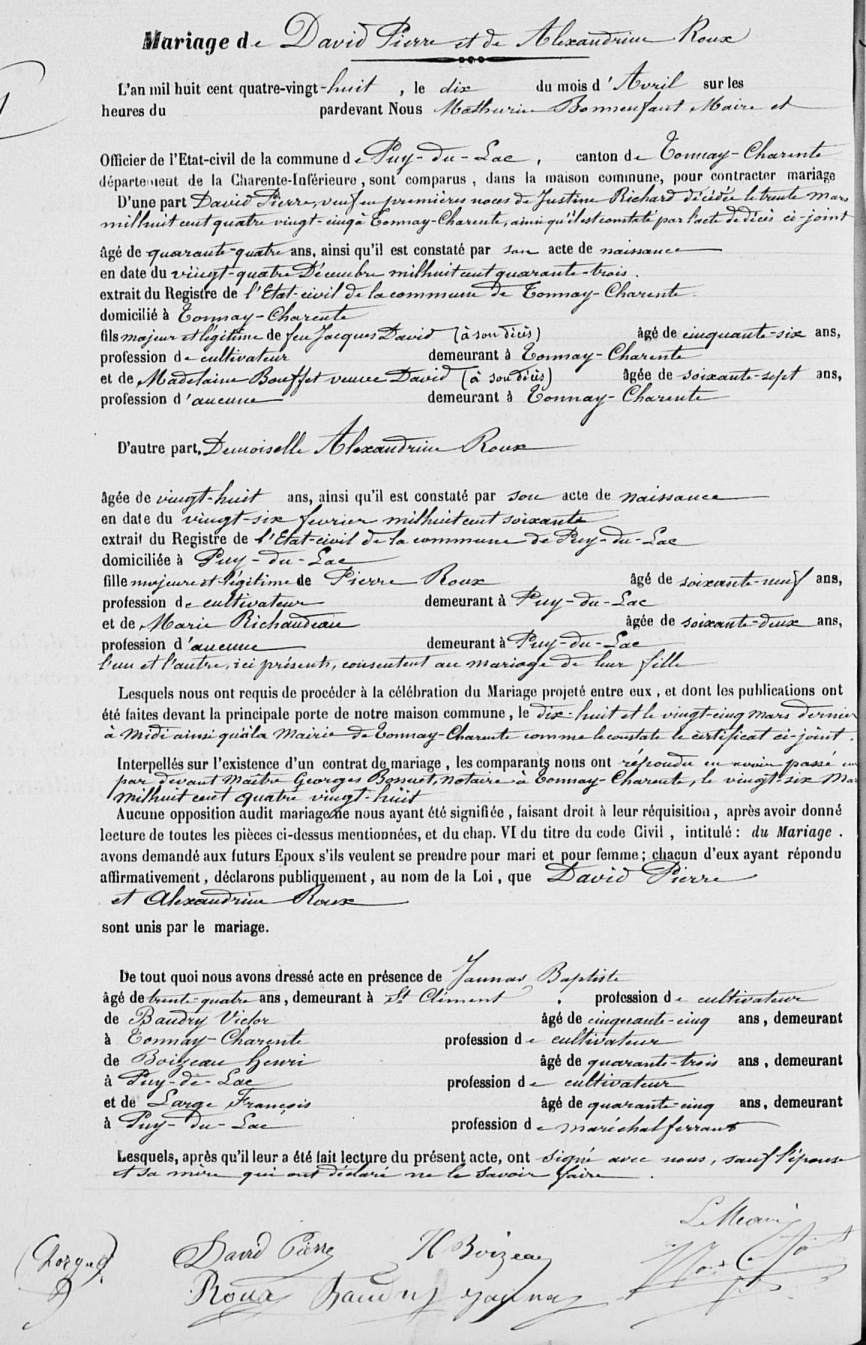 Mariage de David Pierre et de Alexandrine Roux
L'an mil huit cent quatre-vingt-huit , le dix du mois d'Avril sur les
heures du pardevant Nous Mathurin Bonnenfant Maire et
Officier de l'Etat-civil de la commune de Puy-du-Lac, canton de Tonnay-Charente
département de la Charente-Inférieure, sont comparus, dans la maison commune, pour contracter mariage
D'une part David Pierre, veuf en premières noces de Justine Richard décédée le trente Mars
mil huit cent quatre vingt-cinq à Tonnay-Charente, ainsi qu'il est constaté par l'acte de décès ci-joint
âgé de quarante-quatre ans, ainsi qu'il est constaté par son acte de naissance
en date du vingt-quatre Décembre mil huit cent quarante-trois.
extrait du Registre de l'Etat-civil de la commune de Tonnay-Charente.
domicilié à Tonnay-Charente
fils majeur et légitime de feu Jacques David (à son décès) âgé de cinquante-six ans,
profession de cultivateur demeurant à Tonnay-Charente
et de Madelaine Bouffet veuve David (à son décès) âgée de soixante-sept ans,
profession d'aucune demeurant à Tonnay-Charente
D'autre part, Demoiselle Alexandrine Roux
âgée de vingt-huit ans, ainsi qu'il est constaté par son acte de naissance
en date du vingt-six février mil huit cent soixante
extrait du Registre de l'Etat-civil de la commune de Puy-du-Lac
domiciliée à Puy-du-Lac
fille majeure et légitime de Pierre Roux âgé de soixante-neuf ans,
profession de cultivateur demeurant à Puy-du-Lac
et de Marie Richaudeau âgée de soixante-deux ans,
profession d'aucune demeurant à Puy-du-Lac
l'un et l'autre, ici présents, consentent au mariage de leur fille
Lesquels nous ont requis de procéder à la célébration du Mariage projeté entre eux, et dont les publications ont
été faites devant la principale porte de notre maison commune, le dix-huit et le vingt-cinq mars dernier
à Midi ainsi qu'à la Mairie de Tonnay-Charente comme le constate le certificat ci-joint.
Interpellés sur l'existence d'un contrat de mariage, les comparants nons ont répondu en avoir passé un
par devant Maître Georges Bonnet, notaire à Tonnay-Charente, le vingt-six Mars
Mil huit cent quatre vingt-huit
Aucune opposition audit mariage ne nous ayant été signifiée, faisant droit à leur réquisition, après avoir donné
lecture de toutes les pièces ci-dessus mentionnées, et du chap. VI du titre du code Civil, intitulé : du Mariage.
avons demandé aux futurs Epoux s'ils veulent se prendre pour mari et pour femme; chacun d'eux ayant répondu
affirmativement, déclarons publiquement, au nom de la Loi, que David Pierre
et Alexandrine Roux
sont unis par le mariage.
De tout quoi nous avons dressé acte en présence de Jaunas Baptiste
âgé de trente-quatre ans, demeurant à St Clément , profession de cultivateur
de Baudry Victor âgé de cinquante-cinq ans, demeurant
à Tonnay-Charente profession de cultivateur
de Boizeau Henri âgé de quarante-trois ans, demeurant
à Puy-du-Lac profession de cultivateur
et de Large François âgé de quarante-cinq ans, demeurant
à Puy-du-Lac profession de maréchal ferrant
Lesquels, après qu'il leur a été fait lecture du présent acte, ont signé avec nous, sauf l'épouse
et sa mère qui ont déclaré ne le savoir faire.
Le Maire
David Pierre H Boizeau
Roux Baudry Jaunas